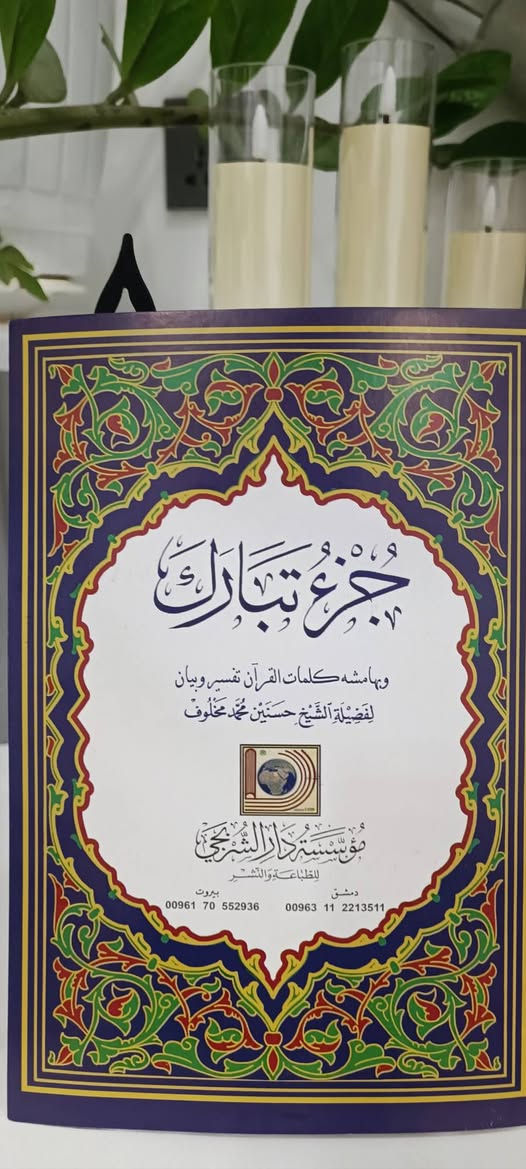 جُزْءُ تَبَارَكَ
وبهامشه كلمات القرآن تفسير وبيان
لِفَضِيْلَةِ الشَّيْخِ حسَنَيْن مُحمَّد مَخْلُوفْ
مُؤَسَّسَة دَار الشُّرْبَجِي
لِلطِّبَاعَةِ وَالنَّشْر
دمشق بيروت
00963 11 2213511 00961 70 552936